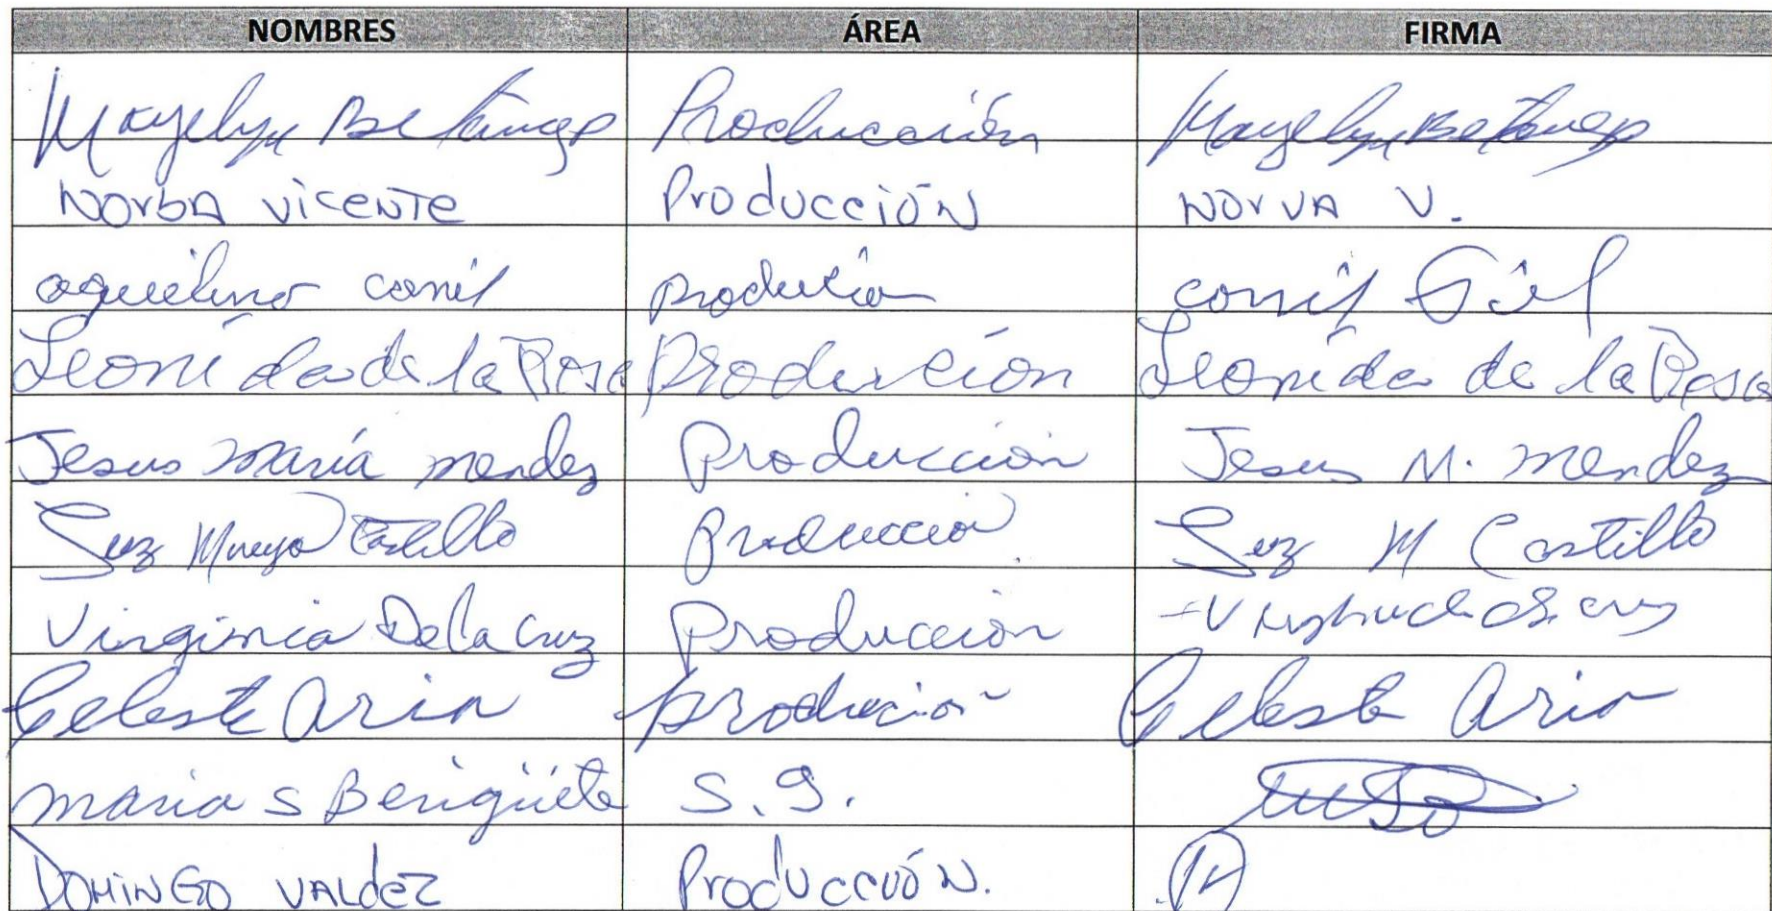 NOMBRES ÁREA FIRMA
Mayelyn Betances Producción Mayelyn Betances
Norba Vicente Producción Norva V.
aquelino canil produción canil
Leonida de la Rosa Producción Leonida de la Rosa
Jesus maría mendez Producción Jesus M. mendez
Luz Castillo Producció Luz M Castillo
Virginia De la Cruz Producción
Celeste Aria produción Celeste Aria
maria S Berigüete S. G.
Domingo Valdez Producción.